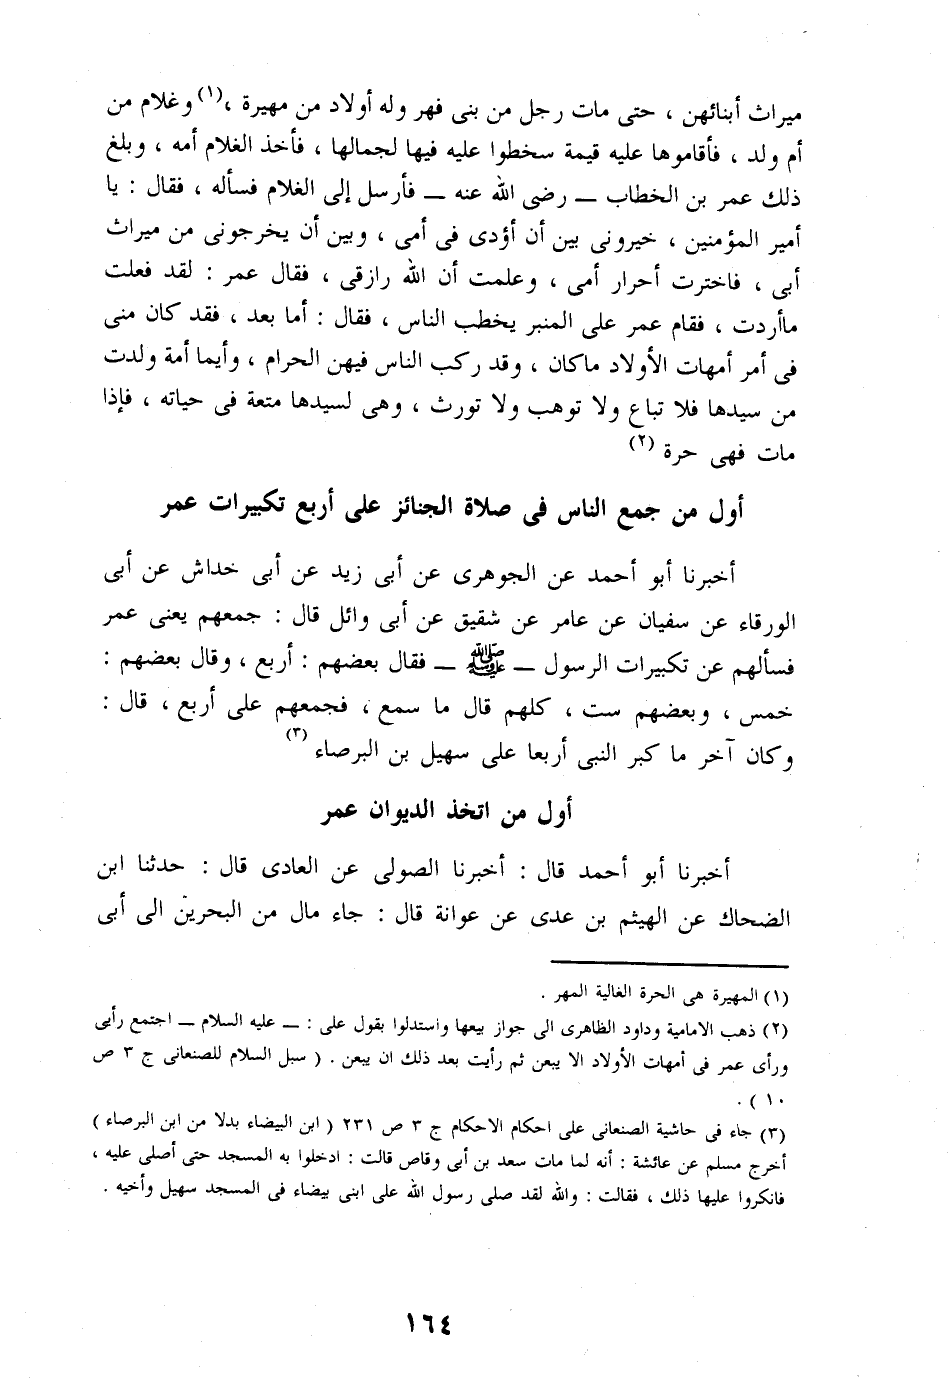 ميراث أبنائهن ، حتى مات رجل من بنى فهر وله أولاد من مهيرة ،(١) وغلام من
أم ولد ، فأقاموها عليه قيمة سخطوا عليه فيها لجمالها ، فأخذ الغلام أمه ، وبلغ
ذلك عمر بن الخطاب ـ رضى الله عنه ـ فأرسل إلى الغلام فسأله ، فقال : يا
أمير المؤمنين ، خيرونى بين أن أؤدى فى أمى ، وبين أن يخرجونى من ميراث
أبى ، فاخترت أحرار أمى ، وعلمت أن الله رازقى ، فقال عمر : لقد فعلت
ماأردت ، فقام عمر على المنبر يخطب الناس ، فقال : أما بعد ، فقد كان منى
فى أمر أمهات الأولاد ماكان ، وقد ركب الناس فيهن الحرام ، وأيما أمة ولدت
من سيدها فلا تباع ولا توهب ولا تورث ، وهى لسيدها متعة فى حياته ، فإذا
مات فهى حرة (٢)
أول من جمع الناس فى صلاة الجنائز على أربع تكبيرات عمر
أخبرنا أبو أحمد عن الجوهرى عن أبى زيد عن أبى خداش عن أبى
الورقاء عن سفيان عن عامر عن شقيق عن أبى وائل قال : جمعهم يعنى عمر
فسألهم عن تكبيرات الرسول ـ ﷺ ـ فقال بعضهم : أربع ، وقال بعضهم :
خمس ، وبعضهم ست ، كلهم قال ما سمع ، فجمعهم على أربع ، قال :
وكان آخر ما كبر النبى أربعا على سهيل بن البرصاء (٣)
أول من اتخذ الديوان عمر
أخبرنا أبو أحمد قال : أخبرنا الصولى عن العادى قال : حدثنا ابن
الضحاك عن الهيثم بن عدى عن عوانة قال : جاء مال من البحرين الى أبى
(١) المهيرة هى الحرة الغالية المهر .
(٢) ذهب الامامية وداود الظاهرى الى جواز بيعها واستدلوا بقول على : ـ عليه السلام ـ اجتمع رأيى
ورأى عمر فى أمهات الأولاد الا يبعن ثم رأيت بعد ذلك ان يبعن . ( سبل السلام للصنعانى ج ٣ ص
١٠ ) .
(٣) جاء فى حاشية الصنعانى على احكام الاحكام ج ٣ ص ٢٣١ ( ابن البيضاء بدلا من ابن البرصاء )
أخرج مسلم عن عائشة : أنه لما مات سعد بن أبى وقاص قالت : ادخلوا به المسجد حتى أصلى عليه ،
فانكروا عليها ذلك ، فقالت : والله لقد صلى رسول الله على ابنى بيضاء فى المسجد سهيل وأخيه .
١٦٤